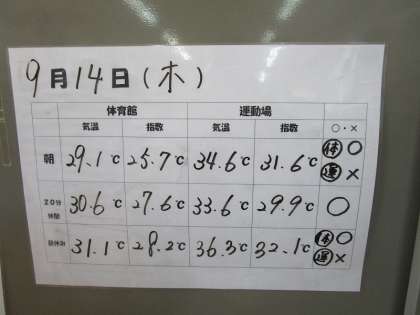 9月14日(木)
体育館 運動場
気温 指数 気温 指数 ○・×
朝 29.1℃ 25.7℃ 34.6℃ 31.6℃ 体 ○ 運 ×
20分休憩 30.6℃ 27.6℃ 33.6℃ 29.9℃ ○
昼休み 31.1℃ 28.2℃ 36.3℃ 32.1℃ 体 ○ 運 ×